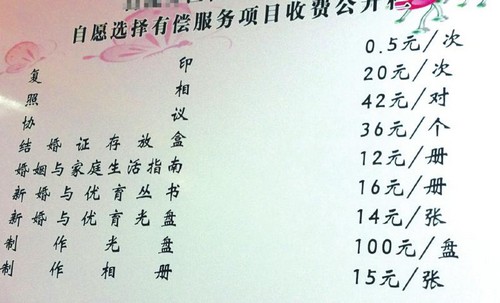 自愿选择有偿服务项目收费公开
复印 0.5元/次
照相 20元/次
协议 42元/对
结婚证存放盒 36元/个
婚姻与家庭生活指南 12元/册
新婚与优育丛书 16元/册
新婚与优育光盘 14元/张
制作光盘 100元/盘
制作相册 15元/张